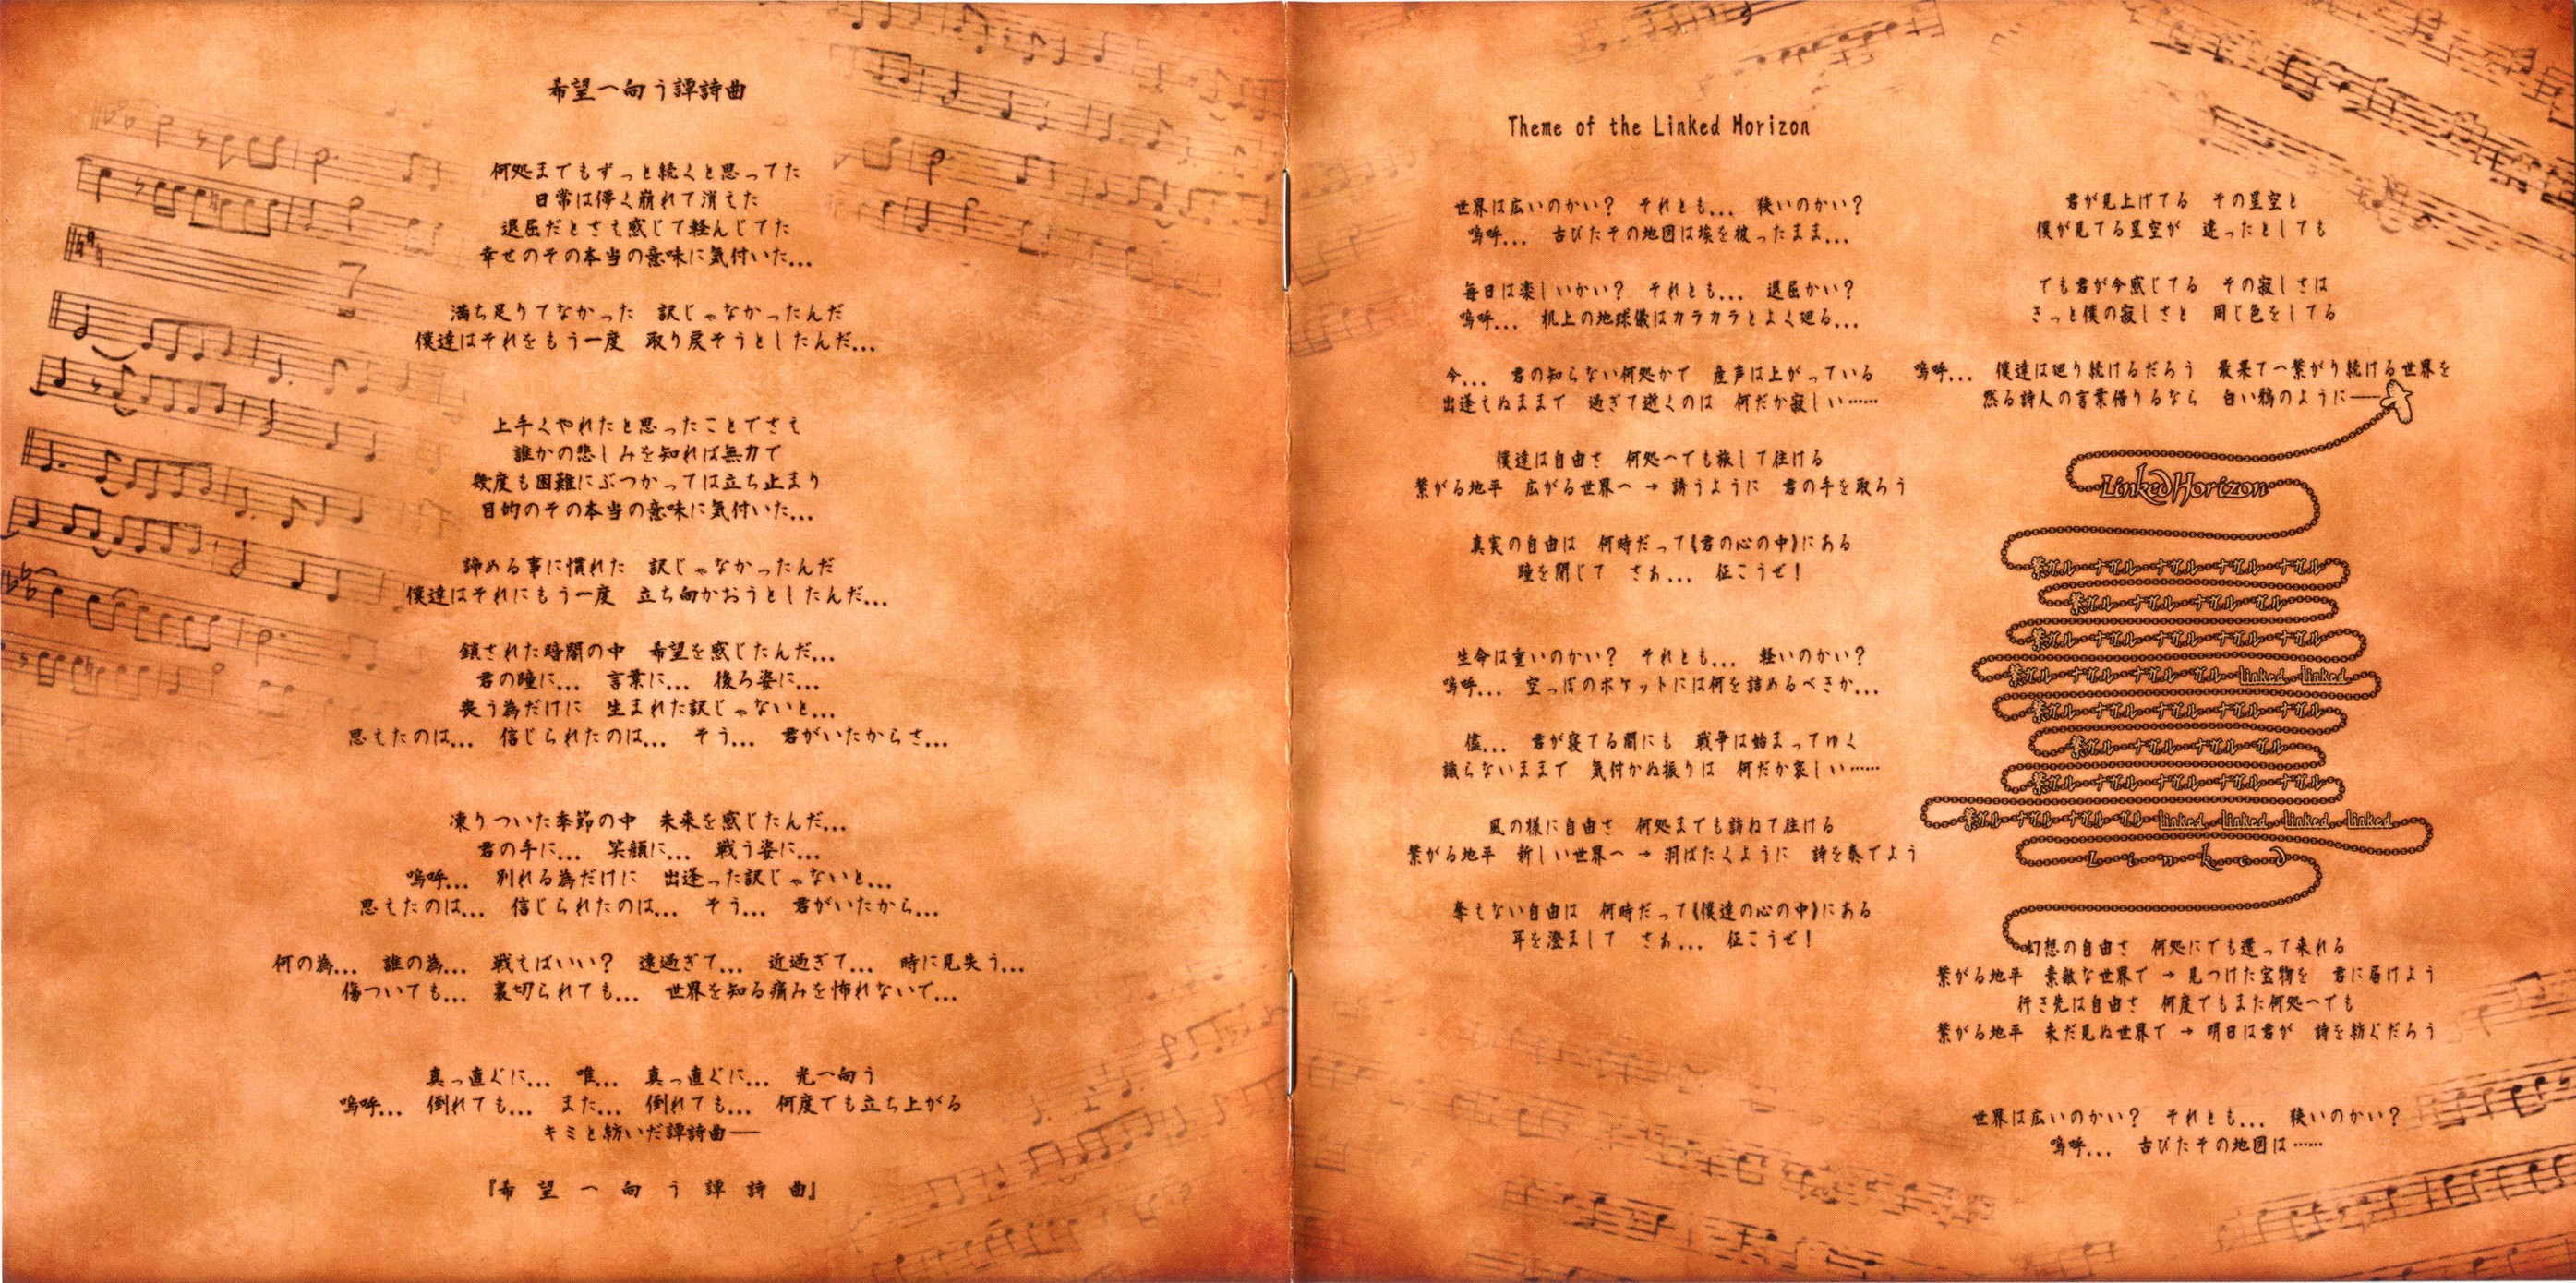 希望へ向う譚詩曲
何処までもずっと続くと思ってた
日常は儚く崩れて消えた
退屈だとさえ感じて軽んじてた
幸せのその本当の意味に気付いた...
満ち足りてなかった　訳じゃなかったんだ
僕達はそれをもう一度　取り戻そうとしたんだ...
上手くやれたと思ったことでさえ
誰かの悲しみを知れば無力で
幾度も困難にぶつかっては立ち止まり
目的のその本当の意味に気付いた...
諦める事に慣れた　訳じゃなかったんだ
僕達はそれにもう一度　立ち向かおうとしたんだ...
鎖された暗闇の中　希望を感じたんだ...
君の瞳に...　言葉に...　後ろ姿に...
喪う為だけに　生まれた訳じゃないと...
思えたのは...　信じられたのは...　そう...　君がいたからさ...
凍りついた季節の中　未来を感じたんだ...
君の手に...　笑顔に...　戦う姿に...
嗚呼...　別れる為だけに　出逢った訳じゃないと...
思えたのは...　信じられたのは...　そう...　君がいたから...
何の為...　誰の為...　戦えばいい？　遠過ぎて...　近過ぎて...　時に見失う...
傷ついても...　裏切られても...　世界を知る痛みを怖れないで...
真っ直ぐに...　唯...　真っ直ぐに...　光へ向う
嗚呼...　倒れても...　また...　倒れても...　何度でも立ち上がる
キミと紡いだ譚詩曲──
『希　望　へ　向　う　譚　詩　曲』
Theme of the Linked Horizon
世界は広いのかい？　それとも...　狭いのかい？
嗚呼...　古びたその地図は埃を被ったまま...
毎日は楽しいかい？　それとも...　退屈かい？
嗚呼...　机上の地球儀はカラカラとよく廻る...
今...　君の知らない何処かで　産声は上がっている
出逢えぬままで　過ぎて逝くのは　何だか寂しい……
僕達は自由さ　何処へでも旅して往ける
繋がる地平　広がる世界へ → 誘うように　君の手を取ろう
真実の自由は　何時だって《君の心の中》にある
瞳を閉じて　さぁ...　征こうぜ！
生命は重いのかい？　それとも...　軽いのかい？
嗚呼...　空っぽのポケットには何を詰めるべきか...
儘...　君が寝てる間にも　戦争は始まってゆく
識らないままで　気付かぬ振りは　何だか哀しい……
風の様に自由さ　何処までも訪ねて往ける
繋がる地平　新しい世界へ → 羽ばたくように　詩を奏でよう
奪えない自由は　何時だって《僕達の心の中》にある
耳を澄まして　さぁ...　征こうぜ！
君が見上げてる　その星空と
僕が見てる星空が　違ったとしても
でも君が今感じてる　その寂しさは
きっと僕の寂しさと　同じ色をしてる
嗚呼...　僕達は廻り続けるだろう　最果てへ繋がり続ける世界を
然る詩人の言葉借りるなら　白い鴉のように──
Linked Horizon
繋ガル‐ナガル‐ナガル‐ナガル‐ナガル
繋ガル‐ナガル‐ナガル‐ガル
繋ガル‐ナガル‐ナガル‐ナガル‐ナガル
繋ガル‐ナガル‐ナガル‐ガル linked linked
繋ガル‐ナガル‐ナガル‐ナガル‐ナガル
繋ガル‐ナガル‐ナガル‐ガル
繋ガル‐ナガル‐ナガル‐ナガル‐ナガル
繋ガル‐ナガル‐ナガル‐ガル linked linked linked linked
Linked
幻想の自由さ　何処にでも還って来れる
繋がる地平　素敵な世界で → 見つけた宝物を　君に届けよう
行き先は自由さ　何度でもまた何処へでも
繋がる地平　未だ見ぬ世界で → 明日は君が　詩を紡ぐだろう
世界は広いのかい？　それとも...　狭いのかい？
嗚呼...　古びたその地図は……